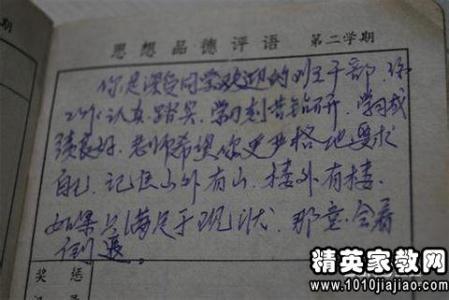 思想品德评语 第二学期
你是深受同学欢迎的班干部 你
工作认真踏实、学习刻苦钻研、学习成
绩良好、老师希望你更严格地要求
自己、记住山外有山、楼外有楼、
如果只满足于现状、那意会着
倒退。
奖惩
精英家教网
http://www.1010jiajiao.com